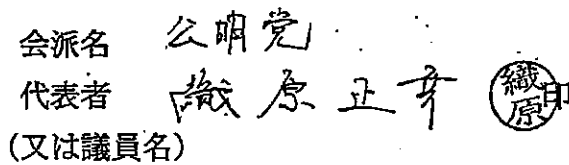 会派名 公明党
代表者 織原正幸 織原 印
(又は議員名)